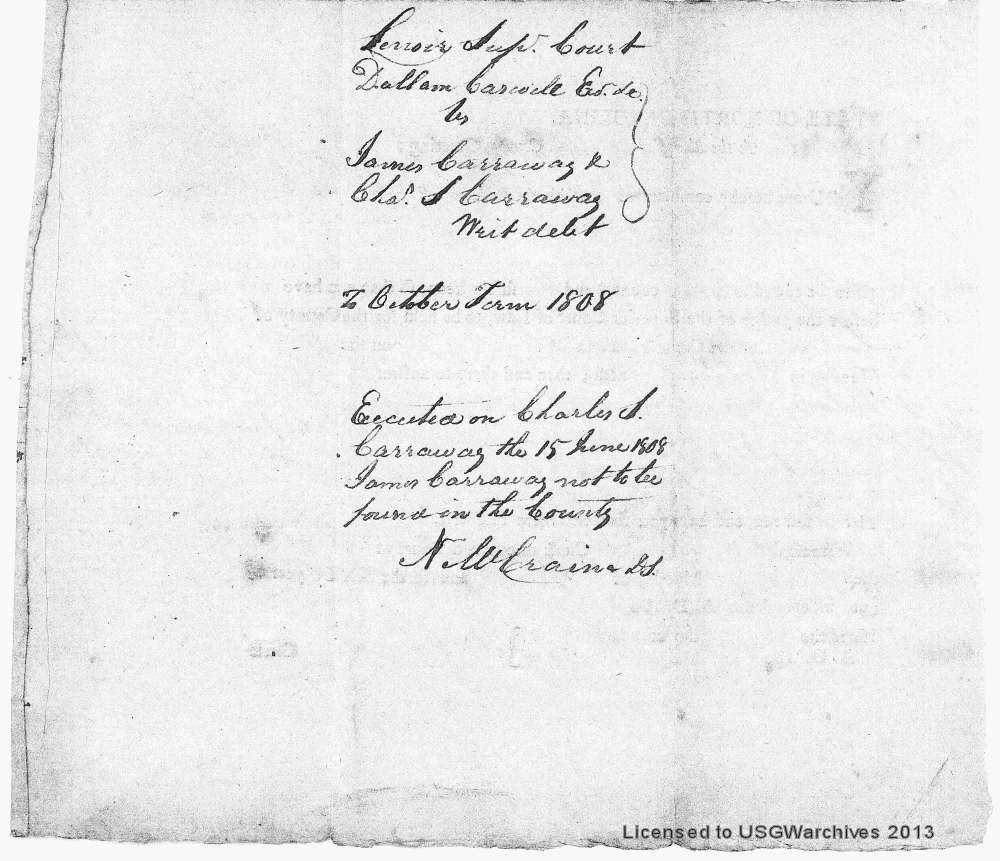 Lenoir Supr. Court
Dallam Caswell Exr. &c.
vs
James Carraway &
Chas. S Carraway
Writ debt
To October Term 1808
Executed on Charles S.
Carraway the 15 June 1808
James Carraway not to be
found in the County
N. McCraine DS.
Licensed to USGWarchives 2013